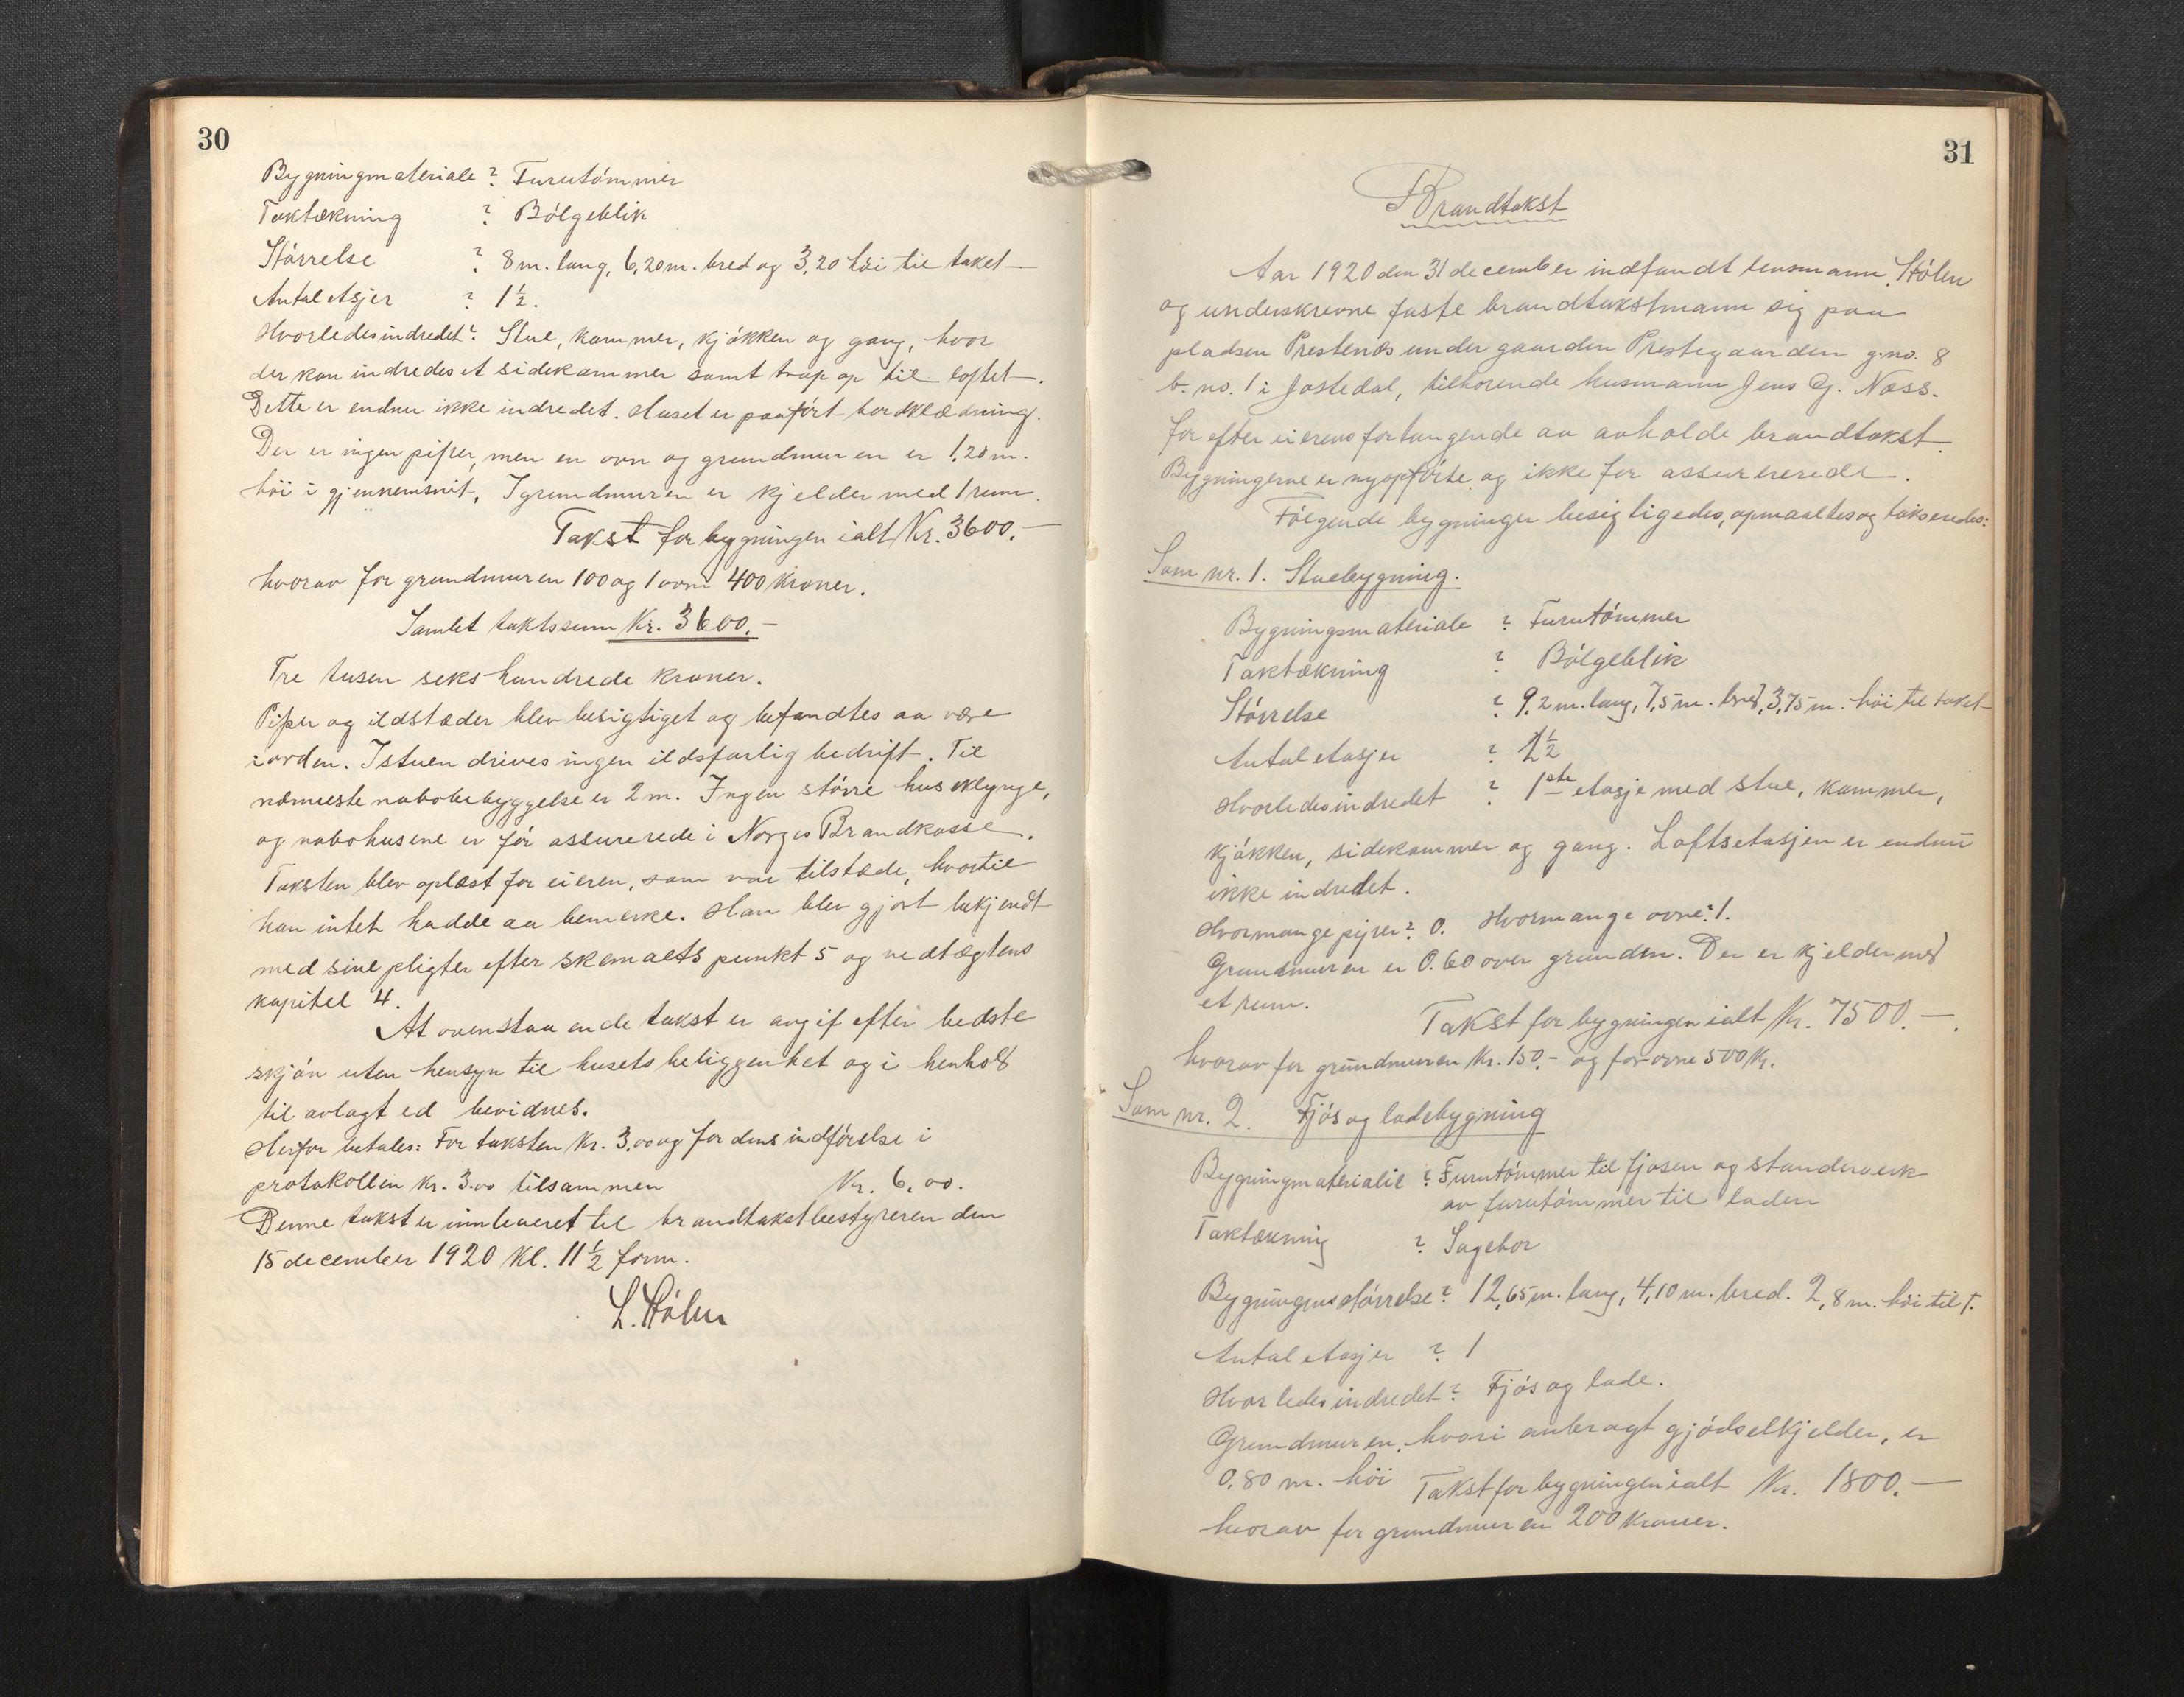 30
Bygningmateriale ? Furutómmer
Taktækning ? Bólgeblik
Störrelse ? 8 m. lang, 6,20 m. bred og 3,20 höi til taket
Antal etsjer ? 1½.
Hvorledes indredet? Stue, kammer, kjókken og gang, hvor
der kan indredes et sidekammer samt trap op til loftet.
Dette er endnu ikke indredet. Huset er paafört bordklædning.
Der er ingen piper, men en ovn og grundmuren er 1,20 m.
höi i gjennemsnit. I grundmuren er kjelder med 1 rum.
Takst for bygningen ialt Kr. 3600.-
hvorav for grundmuren 100 og 1 ovn 400 kroner.
Samlet taktssum Kr. 3600.-
Tre tusen sekshundrede kroner.
Piper og ildstæder blev besigtiget og befandtes aa være
i orden. I stuen drives ingen ildsfarlig bedrift. Til
nærmeste nabobebyggelse er 2 m. Ingen större husklynge,
og nabohusene er för assurerede i Norges Brandkasse.
Taksten blev oplæst for eieren, som var tilstæde, hvortil
han intet hadde aa bemerke. Han blev gjort bekjendt
med sine pligter efter skemaets punkt 5 og vedtægtens
kapitel 4.
At ovenstaaende takst er avgit efter bedste
skjón uten hensyn til husets beliggenhet og i henhold
til avlagt ed bevidnes.
Herfor betales: For taksten Kr. 3,00 og for dens indförelse i
protokollen kr. 3.00 tilsammen Kr. 6,00.
Denne takst er innleveret til brandtakstbestyreren den
15 december 1920 kl. 11½ form.
L. Stólen
31
Brandtakst
Aar 1920 den 31 december indfandt lensmann Stólen
og underskrevne faste brandtakstmann sig paa
pladsen Prestenes under gaarden Prestegaarden g.no. 8
b. no. 1 i Jostedal, tilhorende husmann Jens G. Næss.
for efter eierens forlangende aa avholde brandtakst.
Bygningerne er nyopförte og ikke för assurererede.
Fölgende bygninger besigtigedes, opmaaltes og takseredes:
Som nr. 1. Stuebygning.
Bygningsmateriale ? Furutómmer
Taktækning ? Bólgeblik
Störrelse ? 9,2 m. lang, 7,5 m. bred, 3,75 m. höi til taket
Antal etasjer ? 1½
Hvorledes indredet ? 1ste etasje med stue, kammer,
kjókken, sidekammer og gang. Loftsetasjen er endnu
ikke indredet.
Hvormange piper? 0. Hvormange ovne? 1.
Grundmuren er 0.60 over grunden. Der er kjelder med
et rum.
Takst for bygningen ialt Kr. 7500.-
hvorav for grundmuren Kr. 150.- og for ovne 500 Kr.
Som nr. 2. Fjós og ladebygning
Bygningmaterialie ? Furutómmer til fjosen og standerverk
av furutómmer til laden
Taktækning ? Sagebor
Bygningens störrelse? 12,65 m. lang, 4,10 m. bred. 2,8 m. höi til t.
Antal etasjer ? 1
Hvorledes indredet? Fjós og lade.
Grundmuren, hvori anbragt gjódselkjelder, er
0,80 m. höi Takst for bygningen ialt Kr. 1800.-
hvorav for grundmuren 200 kroner.